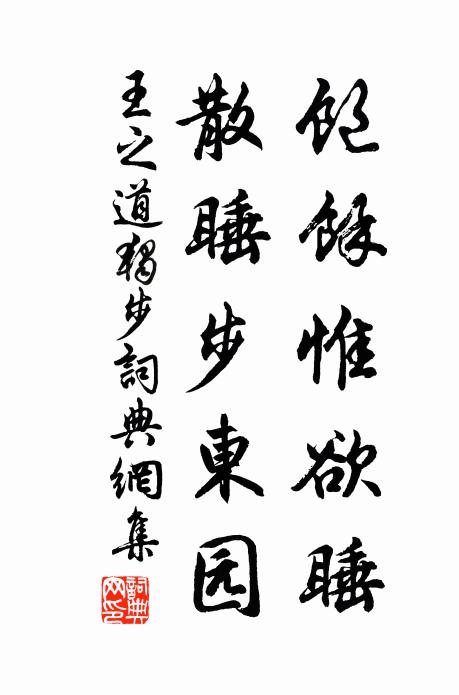 飽餘惟欲睡
散睡步東园
王之道獨步詞典網集
詞典
网印